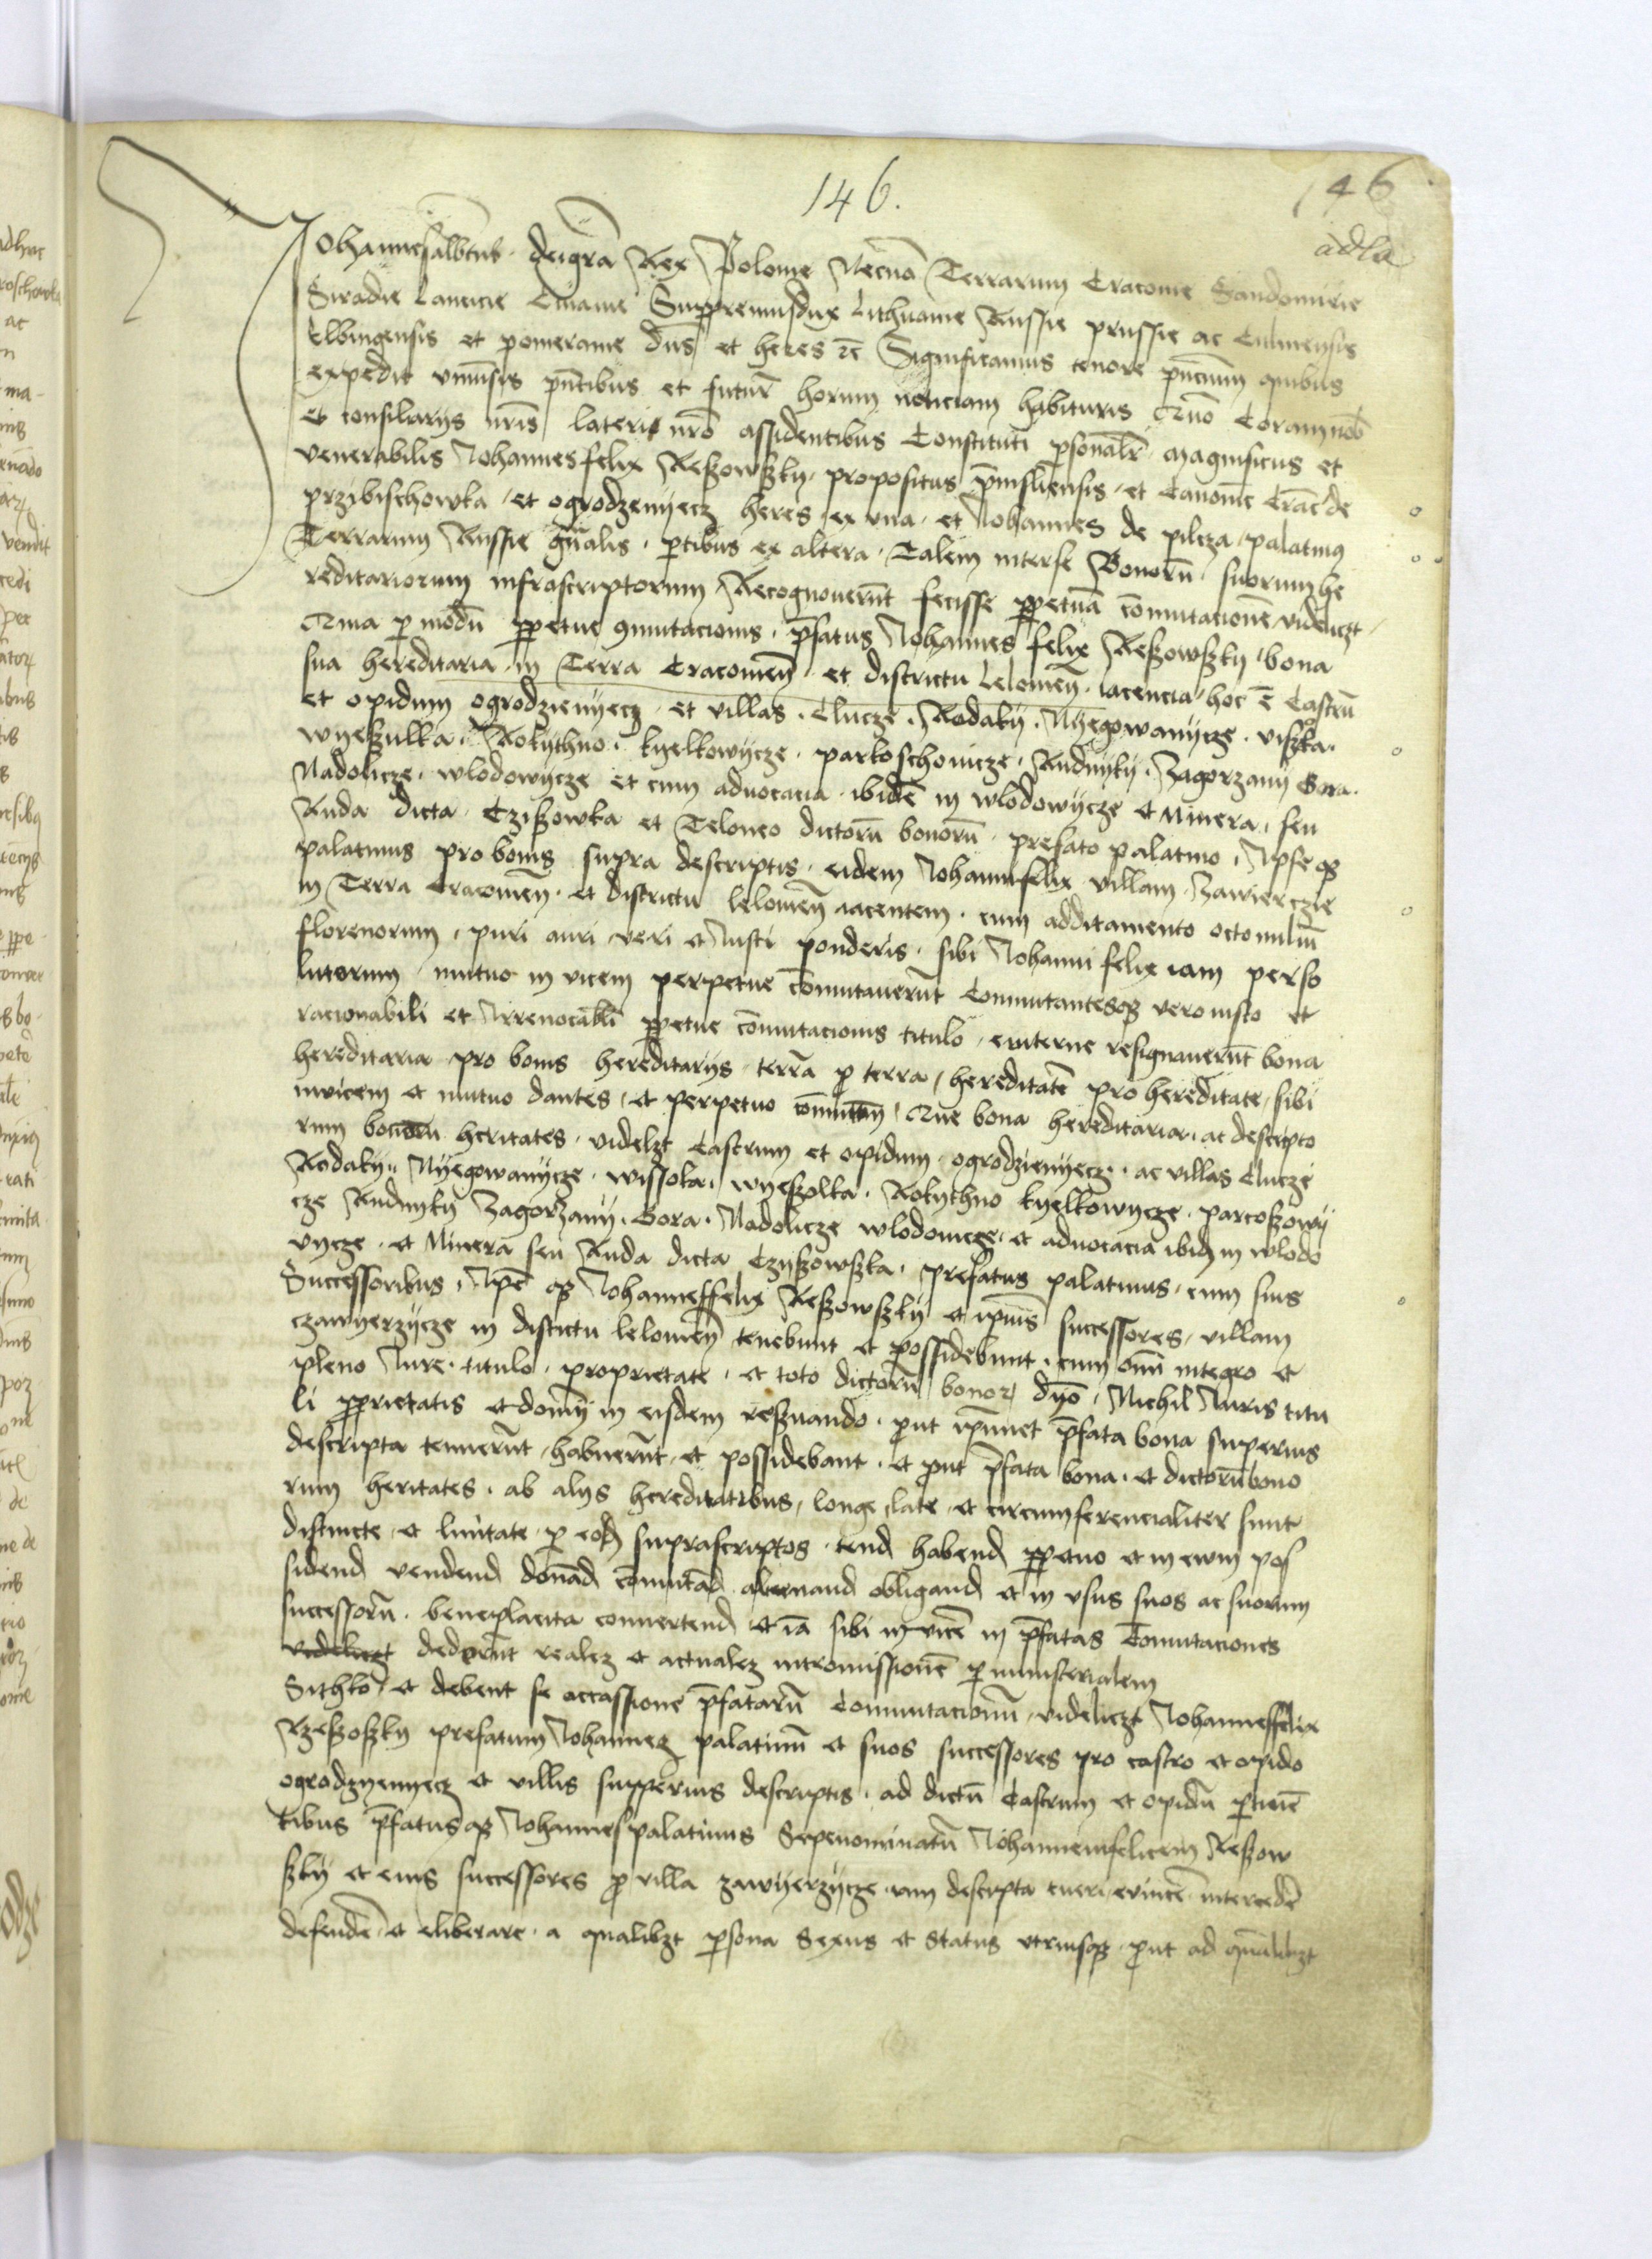 146.
146
adla
Johannesalbtus deigrā Rex Polonie Necnō Terrarum Cracovie Sandomirie
Siradie Lancicie Cuiavie Suppremusdux Lithuanie Russie prussie ac Culmensis
Elbingensis et pomeranie dns et heres zc Significamus tenore pntium quibus
expedit vniusis pntibus et futur horum noticiam habituris Quō Coramnob
et consiliarys nris lateri nrō assidentibus Constituti psonalr magnificus et
venerabilis Johannesfelix Reszowszky propositus pmisliensis et Canonic Crac de
przibischowka et ogrodzenyecz heres ex vna et Johannes de pilcza palatinus
Terrarum Russie gnalis ptibus ex altera Talem interse Bonorū suorum he
reditariorum infrascriptorum Recognouerūt fecisse ppetuā cōmutacionē videlczt
Quia p modū ppetue 9mutacionis pfatus Johannes felix Reszowszky bona
sua hereditaria in Terra Cracouien et districtu Lelouien iacencia hoc ē Castrū
et opidum ogrodzienyecz et villas Clucze Rodaky Nyegowanycze viszka
wyeszulka Rokythno kyelkowycze parkoschouicze Rudnyky Zagorzany Gora
Nadolicze wlodowycze et cum aduocacia ibidē in wlodowycze et Minera seu
Ruda dicta Cziszowka et Teloneo dictorū bonorū prefato palatino Ipseqz
palatinus pro bonis supra descriptis eidem Johannifelix villam Zawierczie
in Terra Cracouien et districtu lelouien iacentem cum additamento octomiliū
florenorum puri auri veri et Justi ponderis sibi Johanni felix iam perso
lutorum mutuo in vicem perpetue cōmutauerūt Commutantesqz vero iusto et
racionabili et Irreuocabli ppetue cōmutacionis titulo euiterne resignauerūt bona
hereditaria pro bonis hereditarys terrā p terra hereditatē pro hereditate sibi
invicem et mutuo dantes et perpetuo cōmutan Que bona hereditaria ac descripto
rum bonorū heritates videlzt Castrum et opidum ogrodzienyecz ac villas Clucze
Rodaky Nyegowanycze wissoka wyeszolka Rokythno kyelkowycze parcoszowy
cze Rudnyky Zagorzany Gora Nadolicze wlodouicze et aduocacia ibid in wlodo
vycze et Minera seu Ruda dicta Czyszowszka prefatus palatinus cum suis
Successoribus Ipē qz Johannesfelix Reszowszky et ipius successores villam
czawyerzycze in districtu lelouien tenebunt et possidebunt cum omi integro et
pleno Jure titulo proprietate et toto dictorū bonor dnō Nichil Juris titu
li pprietatis et domy in eisdem reszuando put ipimet pfata bona superius
descripta tenuerūt habuerūt et possidebant et put pfata bona et dictorūbono
rum heritates ab alys hereditatibus longe late et circumferencialiter sunt
distincte et limitate p eosd suprascriptos tend habend ppetuo et in ewm pos
sidend vendend donād cōmutād alienand obligand et in vsus suos ac suorum
successorū beneplacita conuertend et iā sibi in vicē in pfatas Comutaciones
videliczt dederūt realez et actualez intromissionē p ministerialem
Sithko et debent se occassione pfatarū Commutacionū videliczt Johannesfelix
Rzeszoszky prefatum Johannez palatinū et suos successores pro castro et opido
ogrodzyenyecz et villis supperius descriptis ad dictū Castrum et opidū ptinē
tibus pfatusqz Johannes palatinus Sepenominatū Johannemfelicem Reszow
szky et eius successores p villa zawyerzycze iam descripta tueri evincē intercedē
defendē et eliberare a qualibzt psona Sexus et status vtriusqz put ad quālibzt